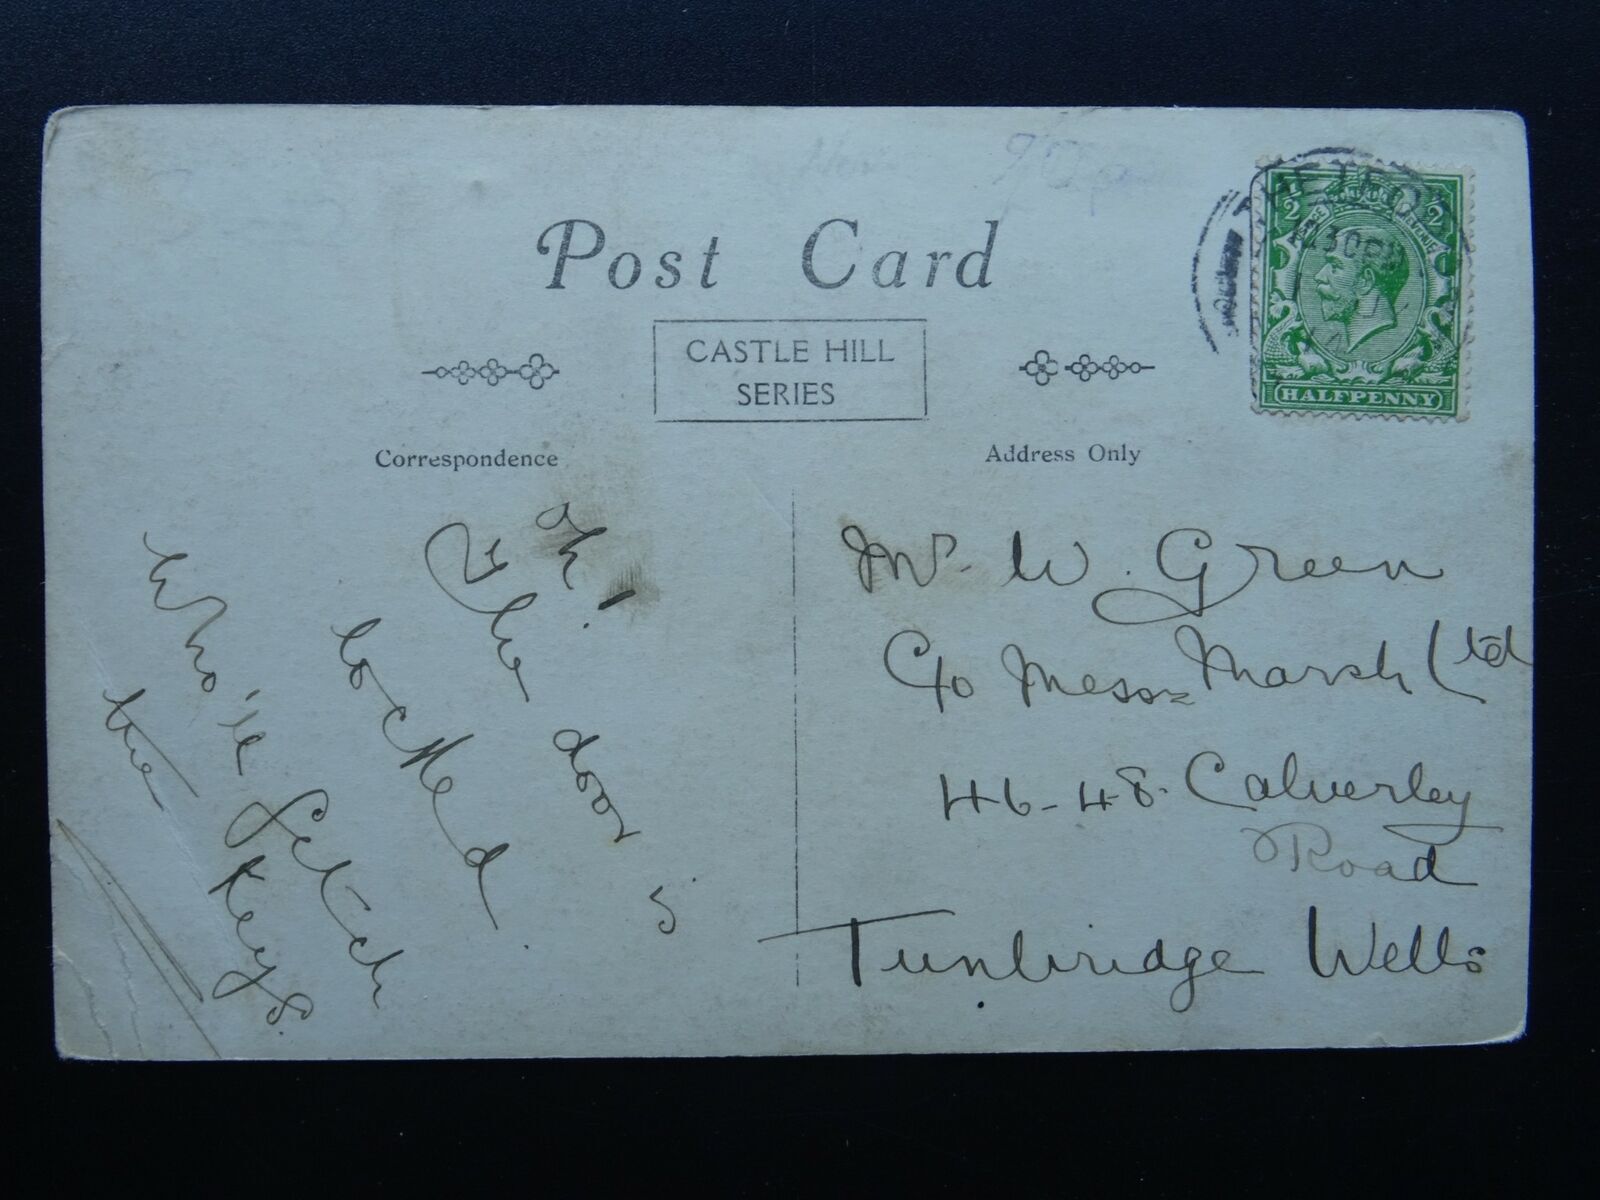 Post Card
CASTLE HILL
SERIES
Correspondence
Address Only
Oh!
The door is
locked.
Who'll fetch
the keys.
Mr. W. Green
C/o Messrs Marsh Ltd
46-48. Calverley
Road
Tunbridge Wells
1/2 1/2
POSTAGE REVENUE
HALFPENNY